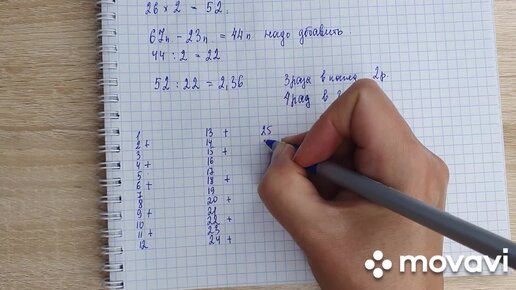 26 × 2 = 52.
67п - 23п = 44п надо дбавить
44 : 2 = 22
52 : 22 = 2,36
3 раза в 2р.
4 ряд в
1
2 +
3
4 +
5
6 +
7
8
9 +
10
11 +
12
13 +
14
15 +
16
17
18 +
19
20 +
21
22 +
23
24 +
25
movavi